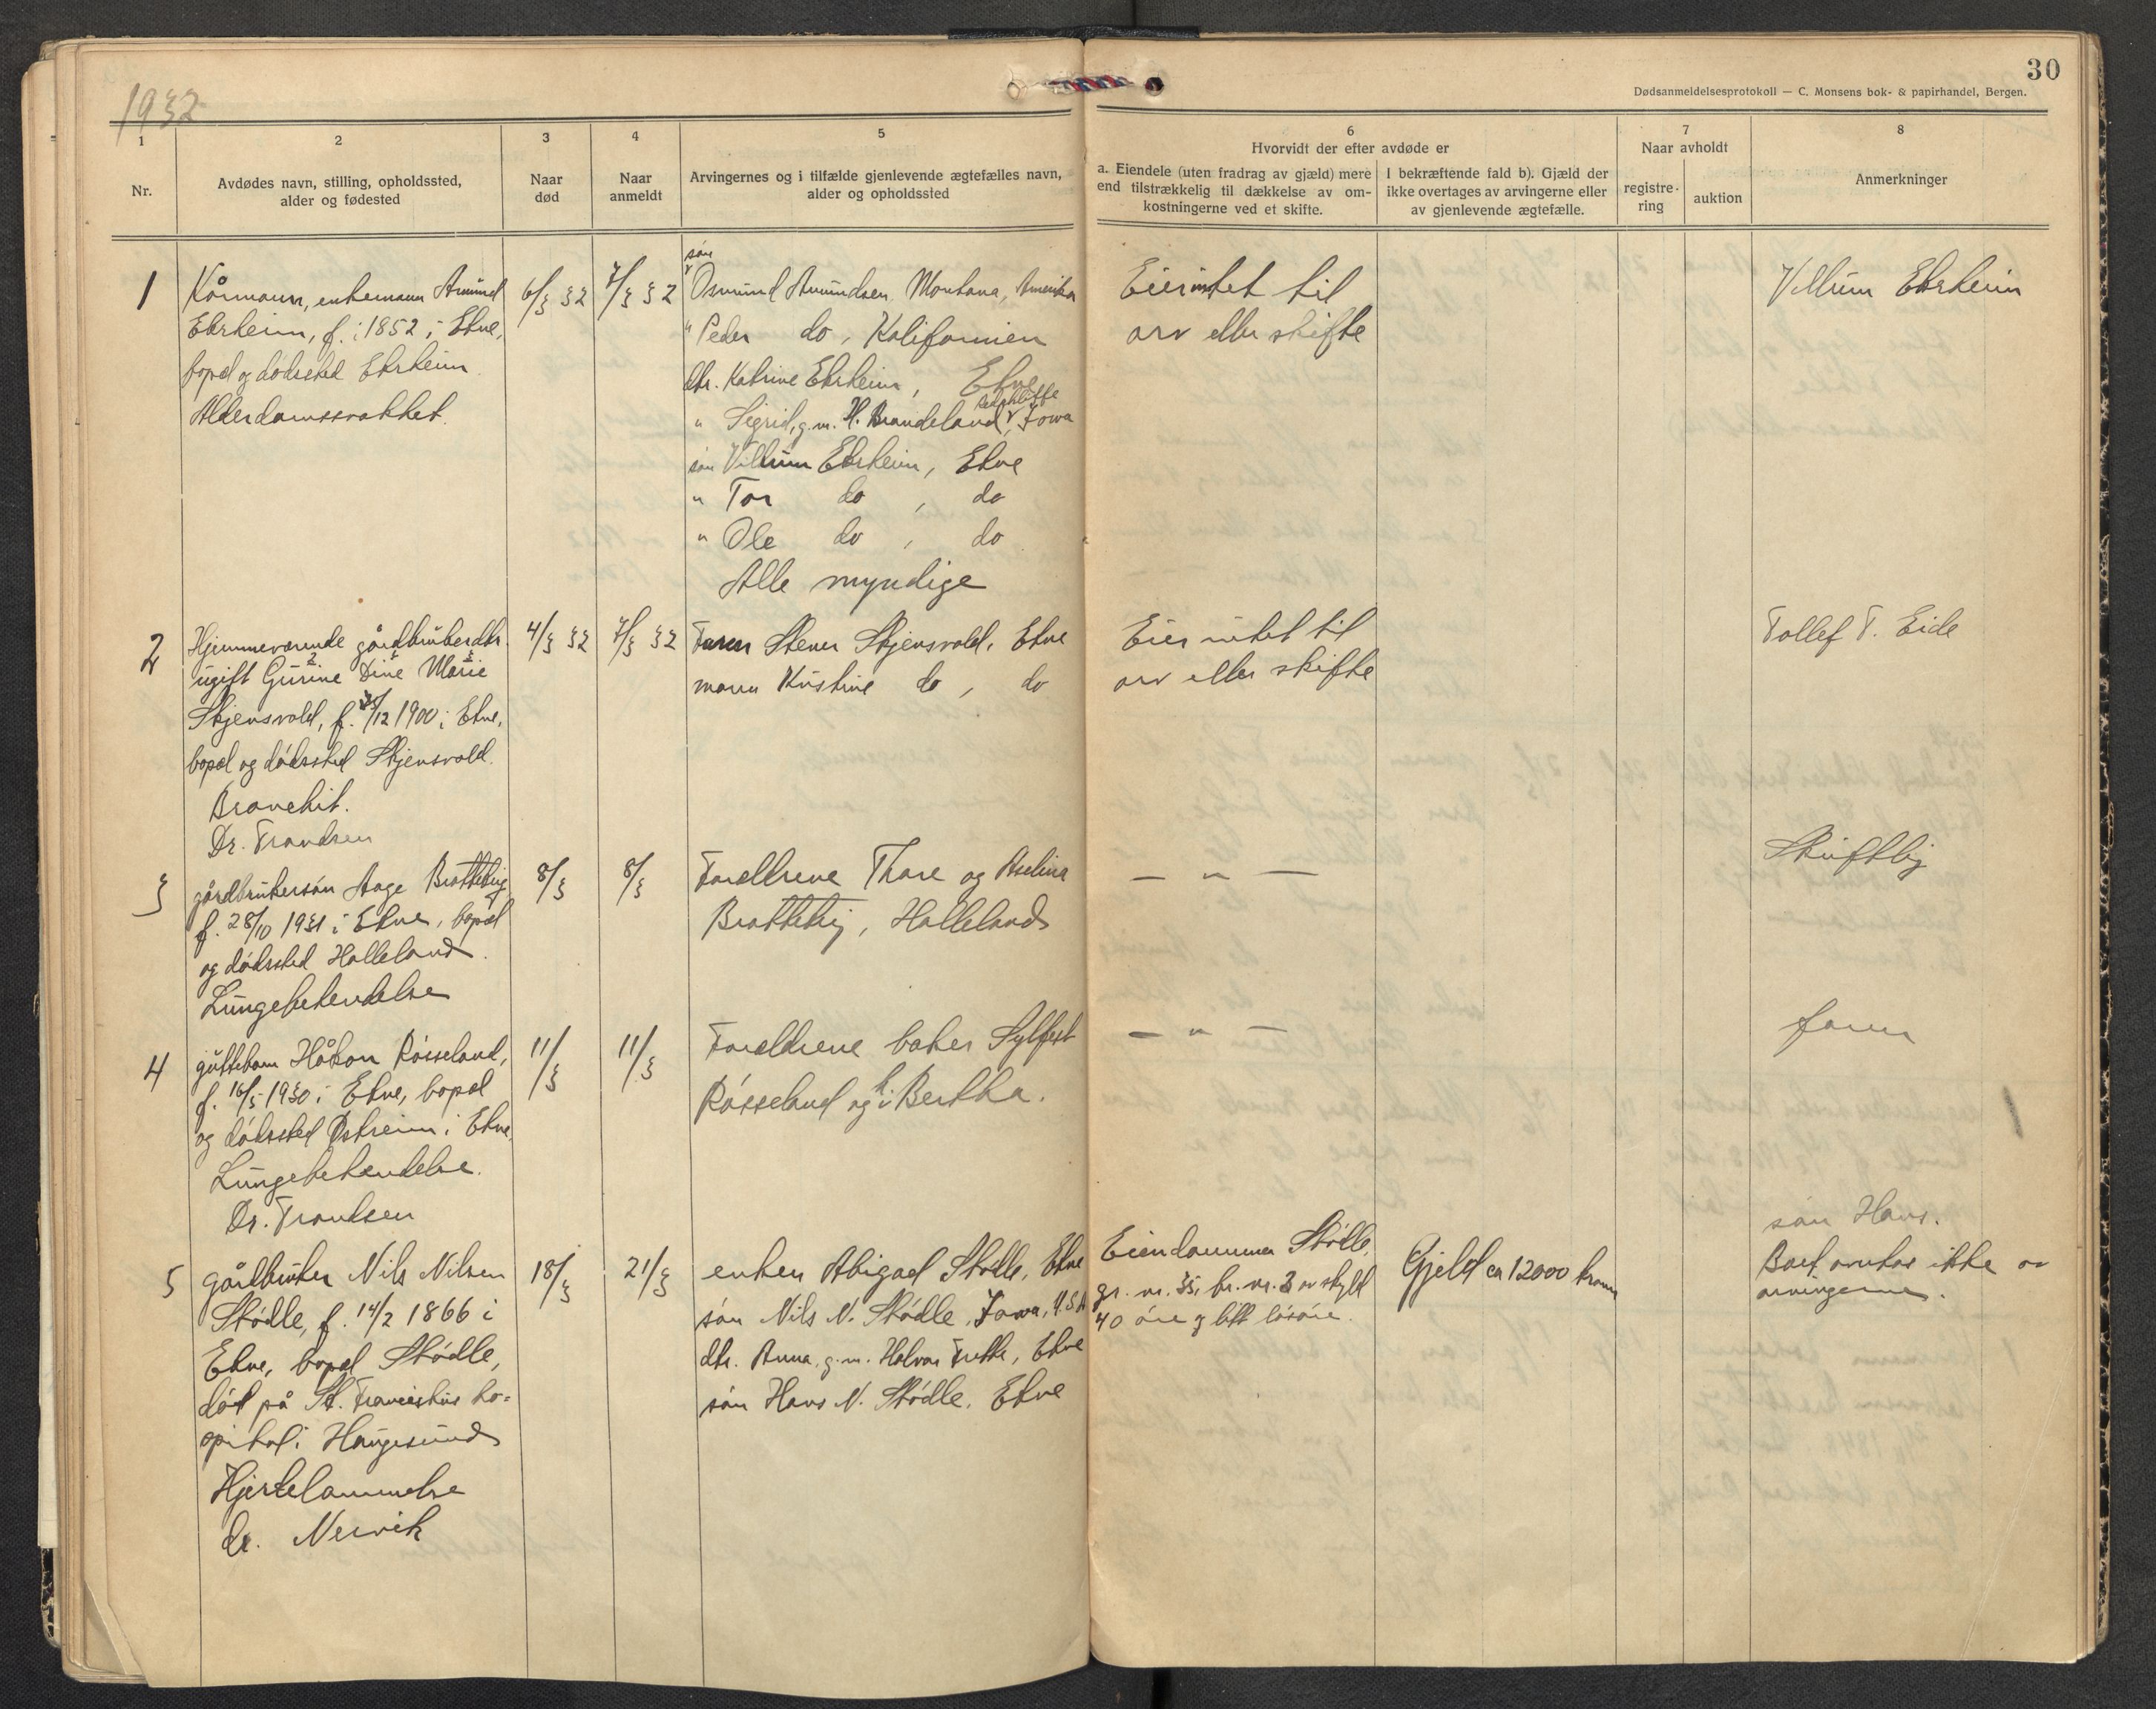 1932
30
Dødsanmeldelsesprotokoll — C. Monsens bok- & papirhandel, Bergen.
1
Nr.
2
Avdødes navn, stilling, opholdssted,
alder og fødested
3
Naar
død
4
Naar
anmeldt
5
Arvingernes og i tilfælde gjenlevende ægtefælles navn,
alder og opholdssted
6
Hvorvidt der efter avdøde er
a. Eiendele (uten fradrag av gjæld) mere
end tilstrækkelig til dækkelse av om-
kostningerne ved et skifte.
I bekræftende fald b). Gjæld der
ikke overtages av arvingerne eller
av gjenlevende ægtefælle.
7
Naar avholdt
registre-
ring
auktion
8
Anmerkninger
1
Kårmann, enkemann Amund
Ebrheim, f. i 1852 i Etne,
bopel og dødssted Ebrheim.
Alderdomssvakhet.
6/3 32
7/3 32
søn
Osmund Amundsen Montana, Amerika
" Peder do, Kalifornien
dtr. Katrine Ebrheim, Etne
" Sigrid, g.m. H. Brandeland, Iowa
søn Villum Ebrheim, Etne
" Tor do, do
" Ole do, do
Alle myndige
Eier intet til
arv eller skifte
Villum Ebrheim
2
Hjemmeværende gårdbrukerdtr.
ugift Gurine Dine Marie
Skjensvold, f. /12 1900 i Etne,
bopel og dødssted Skjensvold.
Bronchit.
Dr. Frandsen
4/3 32
7/3 32
Faren Stener Skjensvold, Etne
moren Kristine do, do
Eier intet til
arv eller skifte
Tollef T. Eide
3
gårdbrukersøn Aage Brattebø
f. 28/10 1931 i Etne, bopel
og dødssted Halleland.
Lungebetendelse
8/3
8/3
Foreldrene Thore og Aselina
Brattebø, Halleland
— " —
Skriftlig
4
guttebarn Håkon Røsseland,
f. 16/5 1930 i Etne, bopel
og dødssted Østreim i Etne.
Lungebetendelse.
Dr. Frandsen
11/3
11/3
Foreldrene baker Sylfest
Røsseland og h. Bertha.
— " —
faren
5
gårdbruker Nils Nilsen
Stødle, f. 14/2 1866 i
Etne, bopel Stødle,
død på St. Franciskus ho-
spital i Haugesund
Hjertelammelse
dr. Nervik
18/3
21/3
enken Abigael Stødle, Etne
søn Nils N. Stødle, Iowa, U.S.A
dtr. Anna, g.m. Halvor Frette, Etne
søn Hans N. Stødle, Etne
Eiendommen Stødle,
gr. nr. 35, br. nr. 3 av skyld
40 øre og litt løsøre.
Gjeld ca 12000 kroner
søn Hans.
Boet overtas ikke av
arvingerne.